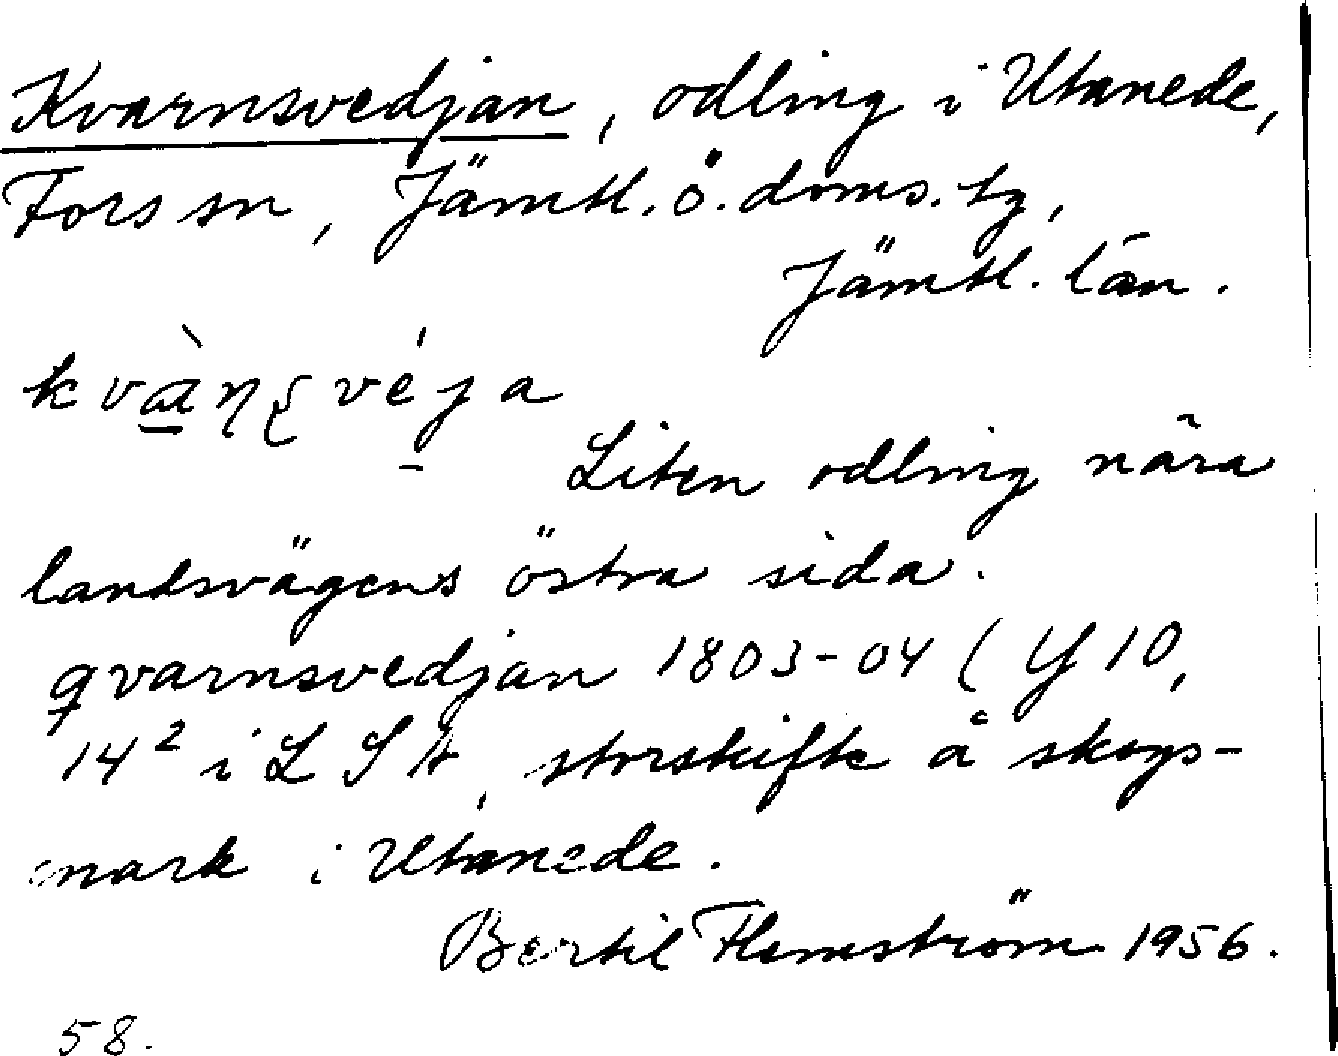 Kvarnsvedjan, odling i Utanede,
Fors sn, Jämtl. ö. doms. tg,
Jämtl. län.
Liten odling nära
landsvägens östra sida.
qvarnsvedjan 1803-04 (Y 10,
14² i LSA, storskifte å skogs-
mark i Utanede.
Bertil Flemström 1956.
58.